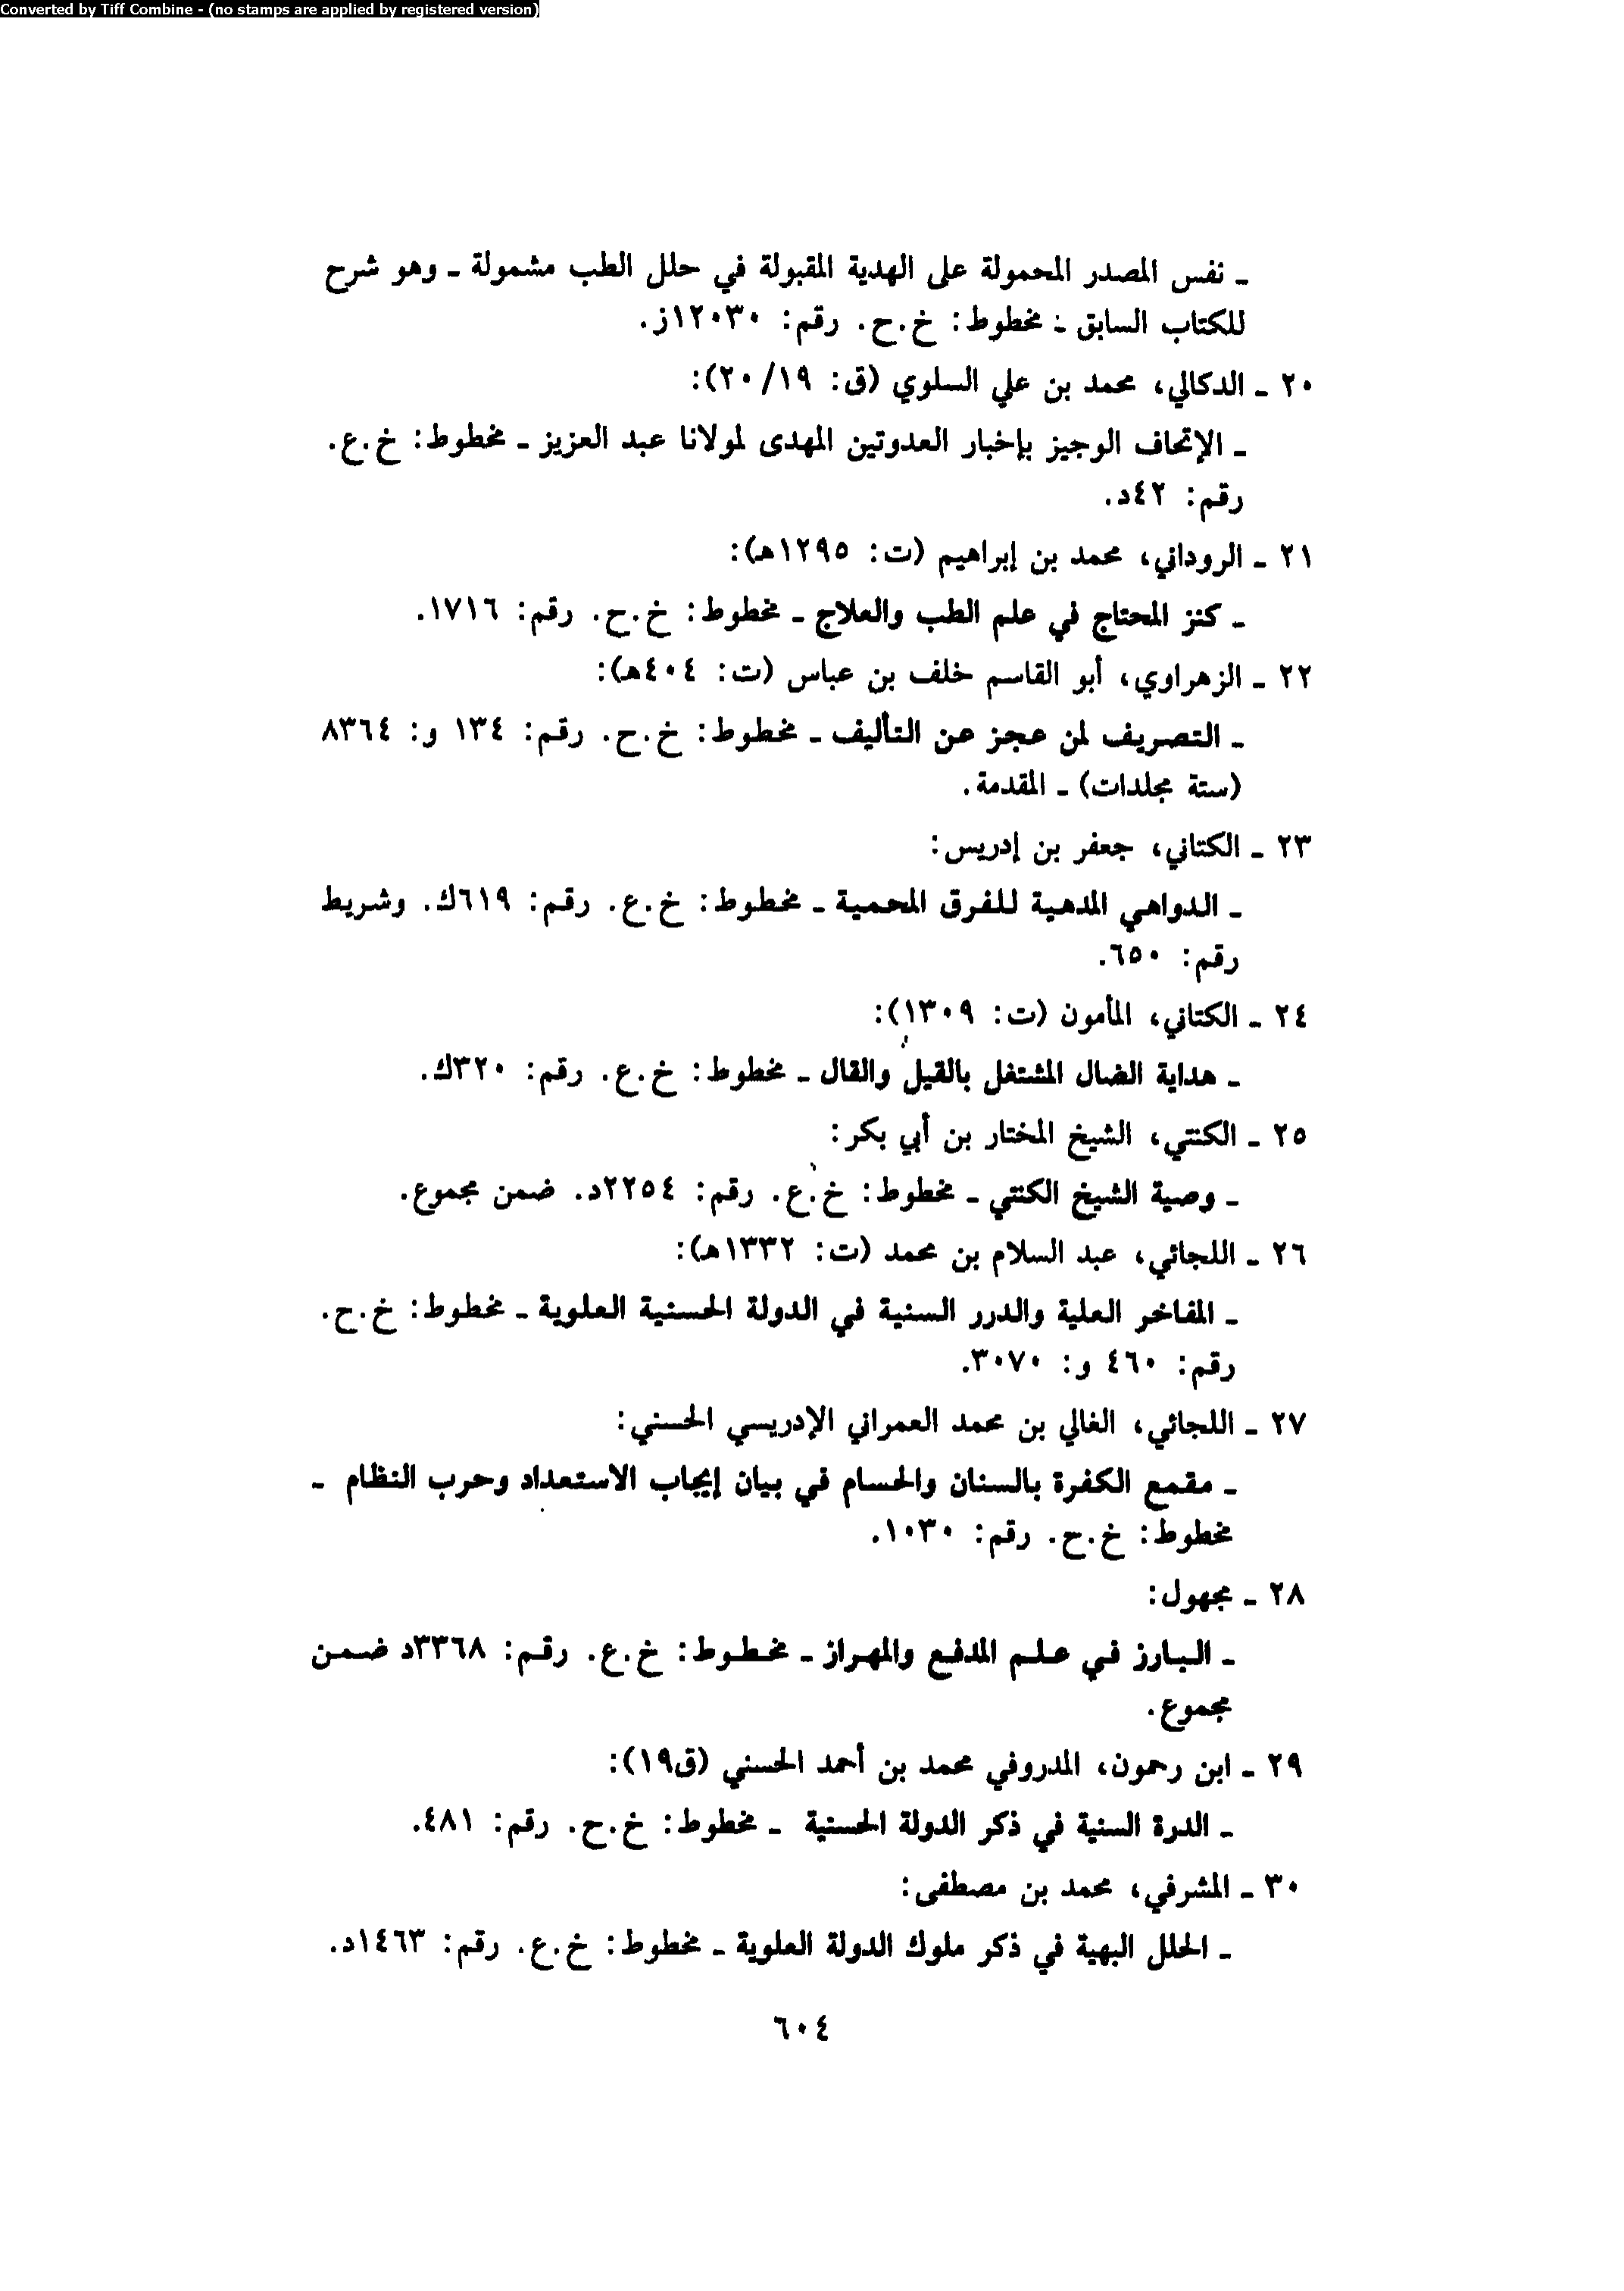 Converted by Tiff Combine - (no stamps are applied by registered version)
ـ نفس المصدر المحمولة على الهدية المقبولة في حلل الطب مشمولة ـ وهو شرح
للكتاب السابق ـ مخطوط: خ.ح. رقم: ١٢٠٣٠ز.
٢٠ ـ الدكالي، محمد بن علي السلوي (ق: ٢٠/١٩):
ـ الإتحاف الوجيز بإخبار العدوتين المهدى لمولانا عبد العزيز ـ مخطوط: خ.ع.
رقم: ٤٢د.
٢١ ـ الروداني، محمد بن إبراهيم (ت: ١٢٩٥هـ):
ـ كنز المحتاج في علم الطب والعلاج ـ مخطوط: خ.ح. رقم: ١٧١٦.
٢٢ ـ الزهراوي، أبو القاسم خلف بن عباس (ت: ٤٠٤هـ):
ـ التصريف لمن عجز عن التأليف ـ مخطوط: خ.ح. رقم: ١٣٤ و: ٨٣٦٤
(ستة مجلدات) ـ المقدمة.
٢٣ ـ الكتاني، جعفر بن إدريس:
ـ الدواهي المدهية للفرق المحمية ـ مخطوط: خ.ع. رقم: ٦١٩ك. وشريط
رقم: ٦٥٠.
٢٤ ـ الكتاني، المأمون (ت: ١٣٠٩):
ـ هداية الضال المشتغل بالقيل والقال ـ مخطوط: خ.ع. رقم: ٣٢٠ك.
٢٥ ـ الكنتي، الشيخ المختار بن أبي بكر:
ـ وصية الشيخ الكنتي ـ مخطوط: خ.ع. رقم: ٢٢٥٤د. ضمن مجموع.
٢٦ ـ اللجائي، عبد السلام بن محمد (ت: ١٣٣٢هـ):
ـ المفاخر العلية والدرر السنية في الدولة الحسنية العلوية ـ مخطوط: خ.ح.
رقم: ٤٦٠ و: ٣٠٧٠.
٢٧ ـ اللجائي، الغالي بن محمد العمراني الإدريسي الحسني:
ـ مقمع الكفرة بالسنان والحسام في بيان إيجاب الاستعداد وحرب النظام ـ
مخطوط: خ.ح. رقم: ١٠٣٠.
٢٨ ـ مجهول:
ـ البارز في علم المدفع والمهراز ـ مخطوط: خ.ع. رقم: ٣٣٦٨د ضمن
مجموع.
٢٩ ـ ابن رحمون، المدروفي محمد بن أحمد الحسني (ق١٩):
ـ الدرة السنية في ذكر الدولة الحسنية ـ مخطوط: خ.ح. رقم: ٤٨١.
٣٠ ـ المشرفي، محمد بن مصطفى:
ـ الحلل البهية في ذكر ملوك الدولة العلوية ـ مخطوط: خ.ع. رقم: ١٤٦٣د.
٦٠٤